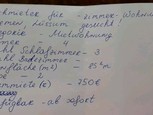 chmieter für -zimmer-Wohnung
men Lissum gesucht!
egorie - Mietwohnung
mer - 4
ahl Schlafzimmer - 3
ahl Badezimmer -
nfläche (m²) - 85 m
ge - 2
mmiete (€) - 750€
fügbar - ab sofort